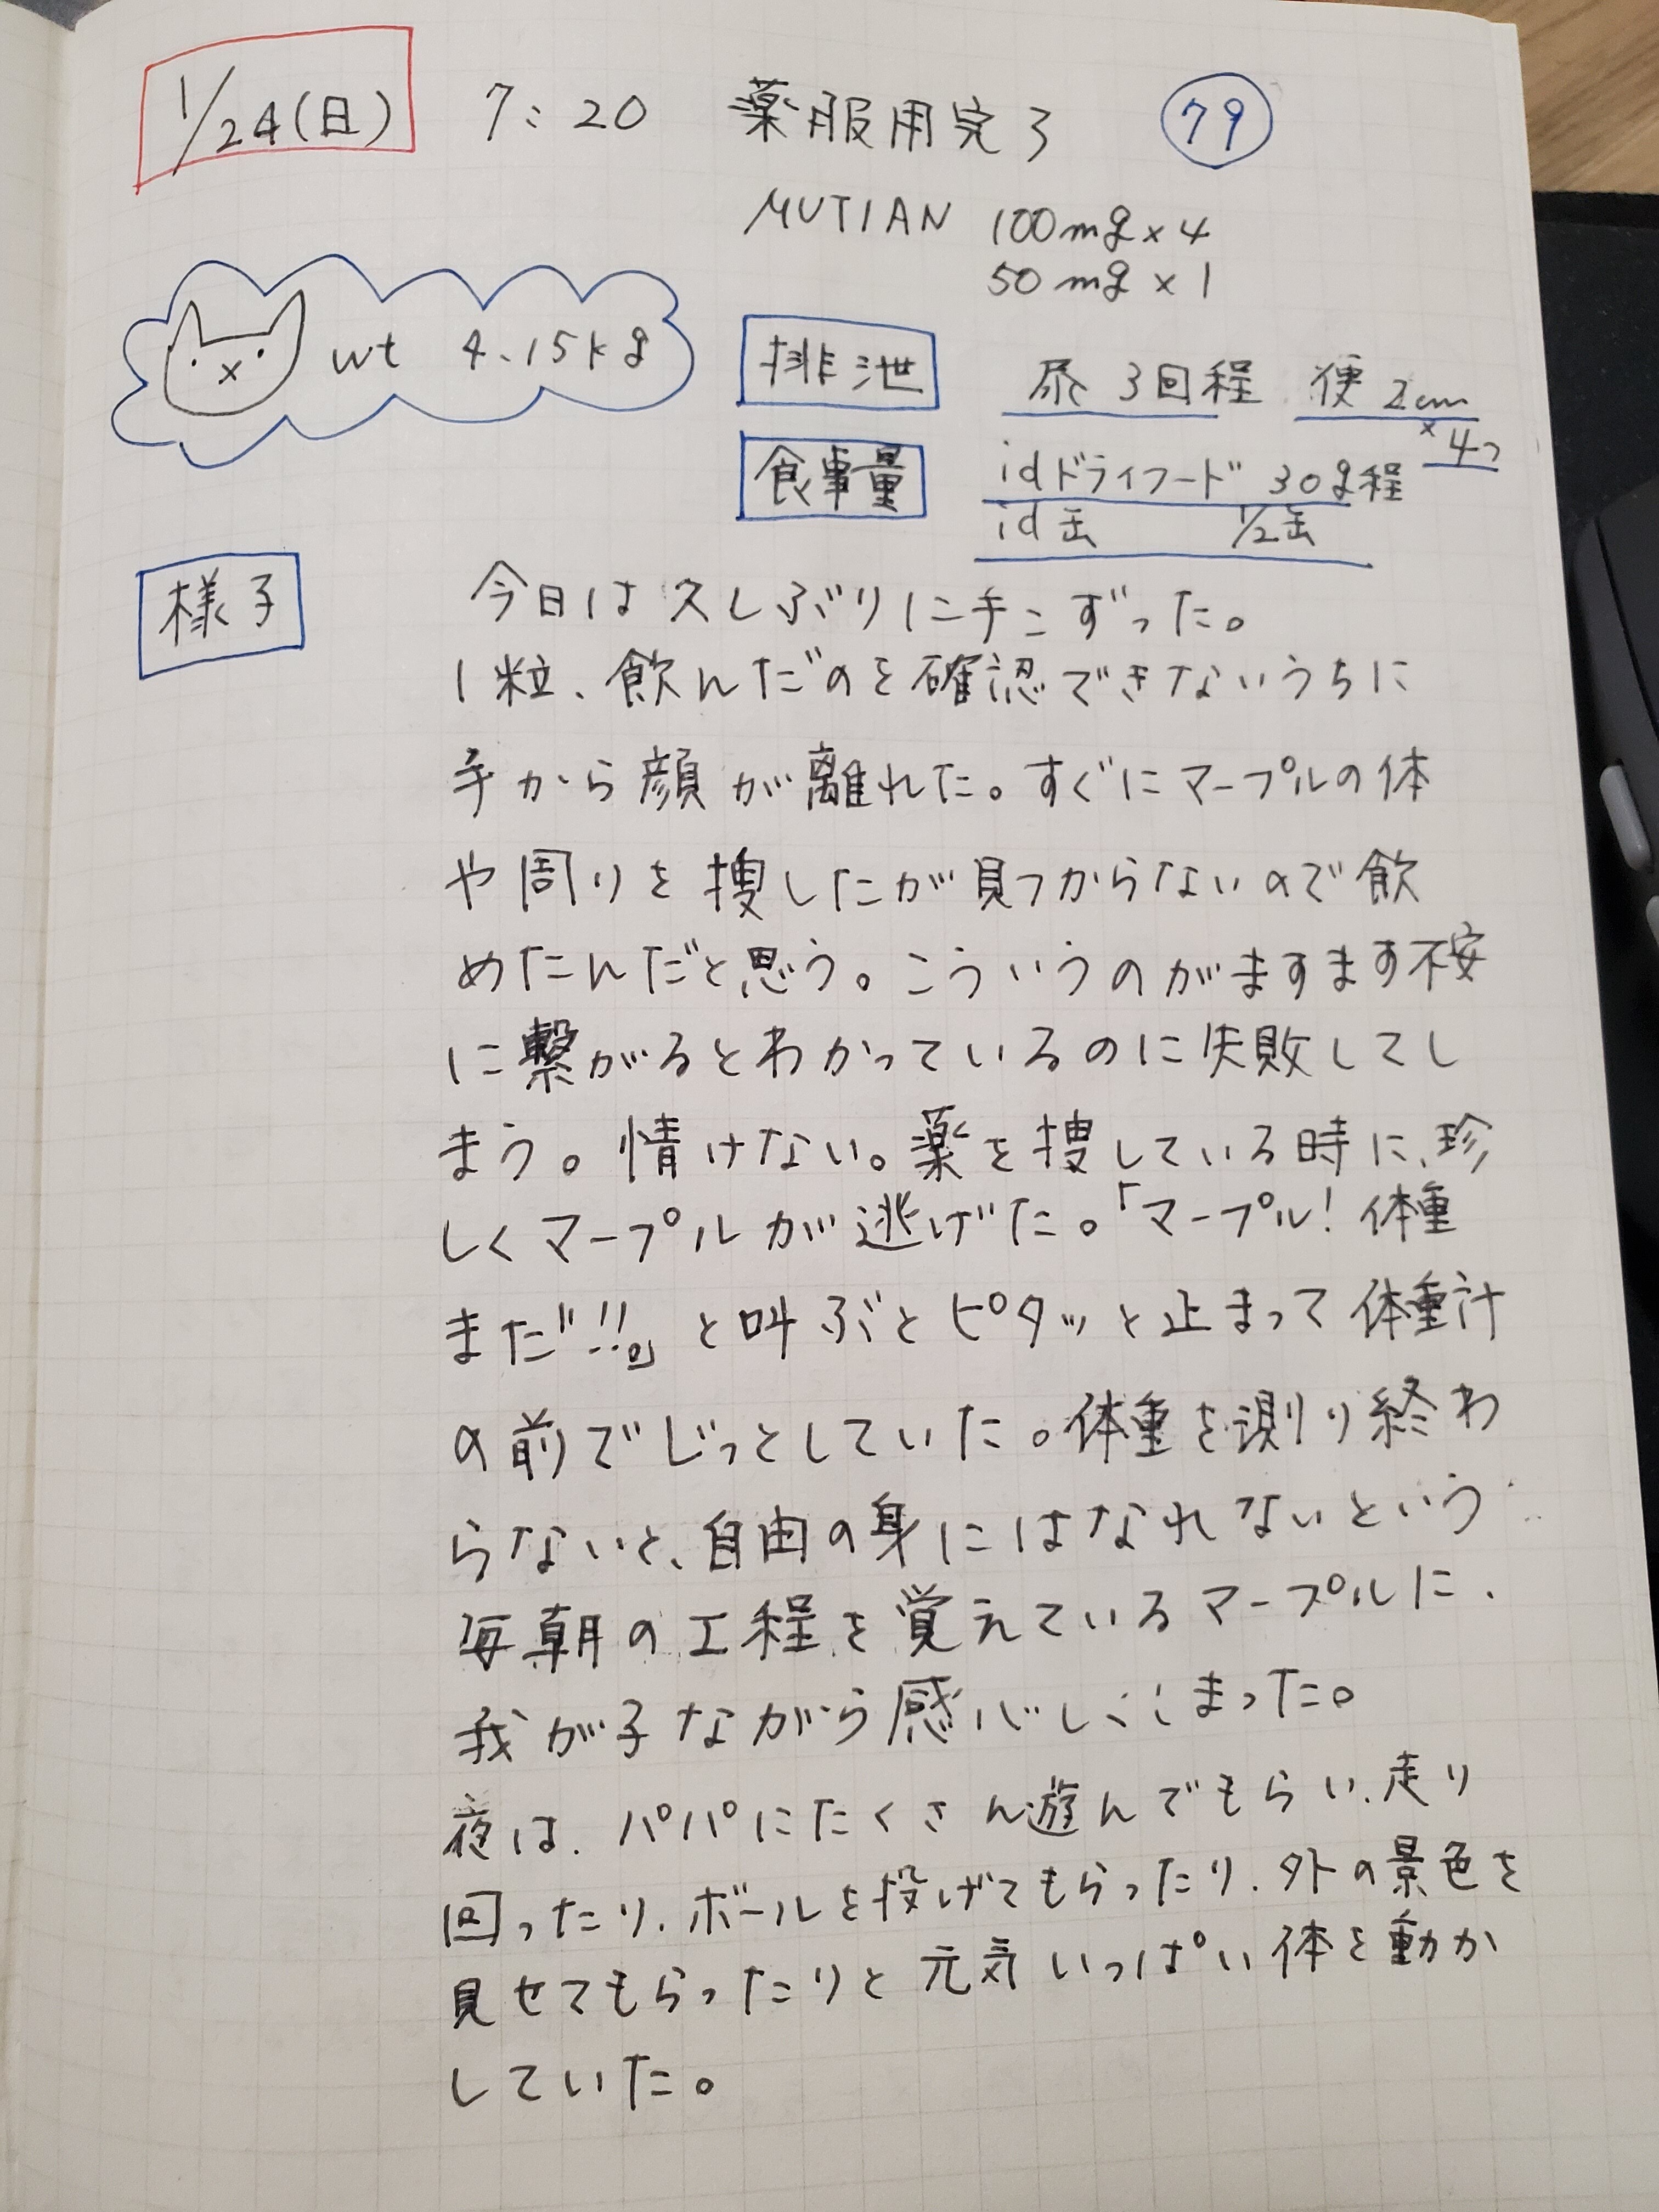 1/24(日) 7:20 薬服用完了 79
MUTIAN 100mg×4
50mg×1
wt 4.15kg
排泄 尿3回程 便2cm
×4つ
食事量 idドライフード 30g程
id缶 1/2缶
様子 今日は久しぶりに手こずった。
1粒、飲んだのを確認できないうちに
手から顔が離れた。すぐにマープルの体
や周りを捜したが見つからないので飲
めたんだと思う。こういうのがますます不安
に繋がるとわかっているのに失敗してし
まう。情けない。薬を捜している時に、珍
しくマープルが逃げた。「マープル!体重
まだ!!。」と叫ぶとピタッと止まって体重計
の前でじっとしていた。体重を測り終わ
らないと、自由の身にはなれないという
毎朝の工程を覚えているマープルに、
我が子ながら感心してしまった。
夜は、パパにたくさん遊んでもらい、走り
回ったり、ボールを投げてもらったり、外の景色を
見せてもらったりと元気いっぱい体を動か
していた。